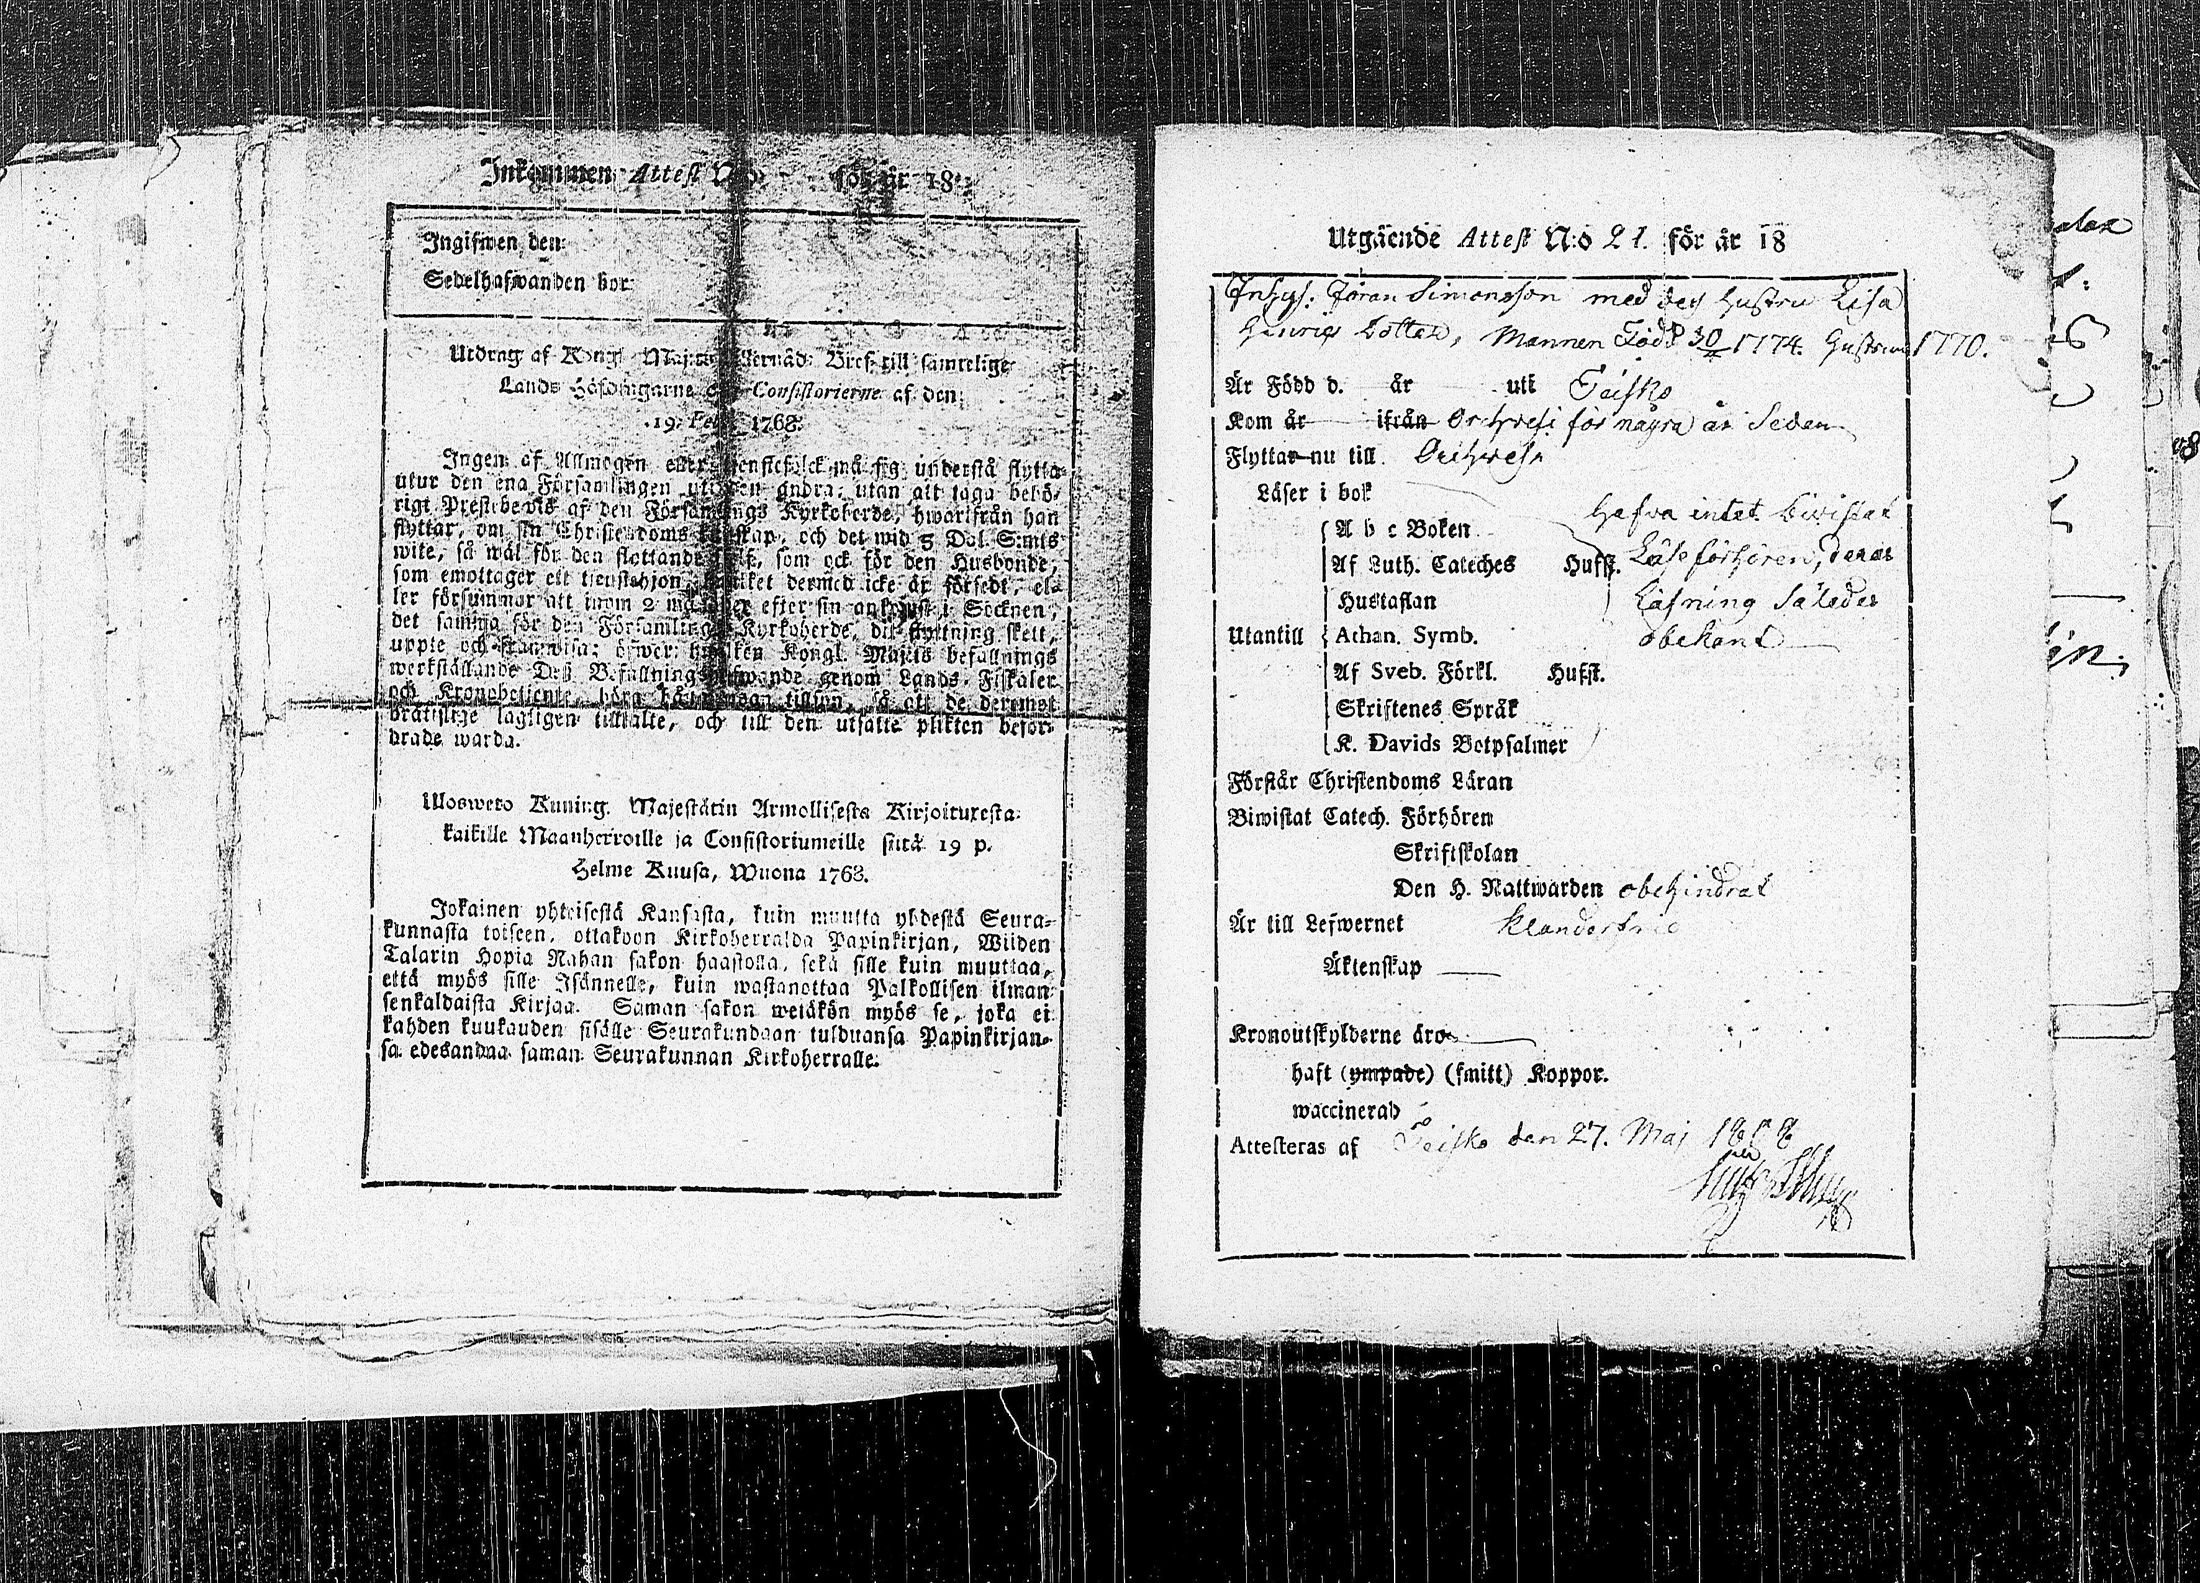 Inkommen Attest N:o för år 18
Ingifwen den
Sedelhafwanden bor
Utdrag af Kongl. Maj:ts Bref till samtelige
Lands Höfdingarne Consistorierne af den
19. Feb. 1768.
Ingen af Allmogen eller må sig understå flytta
utur den ena Församlingen andra, utan att taga behö-
rigt Prestebevis af den Församlings Kyrkoherde, hwarifrån han
flyttar, om sin Christendoms och det wid 5 Dal. S:mts
wite, så wäl för den flyttande som ock för den Husbonde,
som emottager ett tienstehjon, dermed icke är försedt, el-
ler försummar att inom 2 efter sin ankomst i Socknen,
det samma för den Församlings Kyrkoherde, dit flyttning skett,
uppte och framwisa; öfwer Kongl. Maj:ts befallnings
werkställande Deß Befallningshafwande genom Lands-Fiskaler
och Kronobetiente, så att de deremot
brätslige lagligen tilltalte, och till den utsatte plikten befor-
drade warda.
Ulosweto Kuning. Majestätin Armollisesta Kirjoituxesta
kaikille Maanherroille ja Consistoriumeille siitä 19 p.
Helme Kuusa, Wuona 1768.
Jokainen yhteisestä Kansasta, kuin muutta yhdestä Seura-
kunnasta toiseen, ottakoon Kirkoherralda Papinkirjan, Wiiden
Talarin Hopia Rahan sakon haastolla, sekä sille kuin muuttaa,
että myös sille Isännelle, kuin wastanottaa Palkollisen ilman
senkaldaista Kirjaa. Saman sakon wetäkön myös se, joka ei
kahden kuukauden sisälle Seurakundaan tulduansa Papinkirjan-
sa edesandaa saman Seurakunnan Kirkoherralle.
Utgående Attest N:o 21. för år 18
Inhys. Jöran Simonsson med des hustru Lisa
Henrics dotter, Mannen Född 30 1774. Hustrun 1770.
Är Född d. år uti Teisko
Kom år ifrån Orihvesi för några år Sedan
Flyttar nu till Orihvesi
Läser i bok
Hafva intet biwistat
A b c Boken
Af Luth. Cateches Hufst. Läseförhören, deras
Hustaflan Läsning Således
Utantill Athan. Symb. obekant
Af Sveb. Förkl. Hufst.
Skriftenes Språk
K. Davids Botpsalmer
Förstår Christendoms Läran
Biwistat Catech. Förhören
Skriftskolan
Den H. Nattwarden obehindrat
Är till Lefwernet klanderfrie
Äktenskap
Kronoutskylderne äro
haft (ympade) (smitt) Koppor.
waccinerad
Attesteras af Teisko den 27. Maj 1808